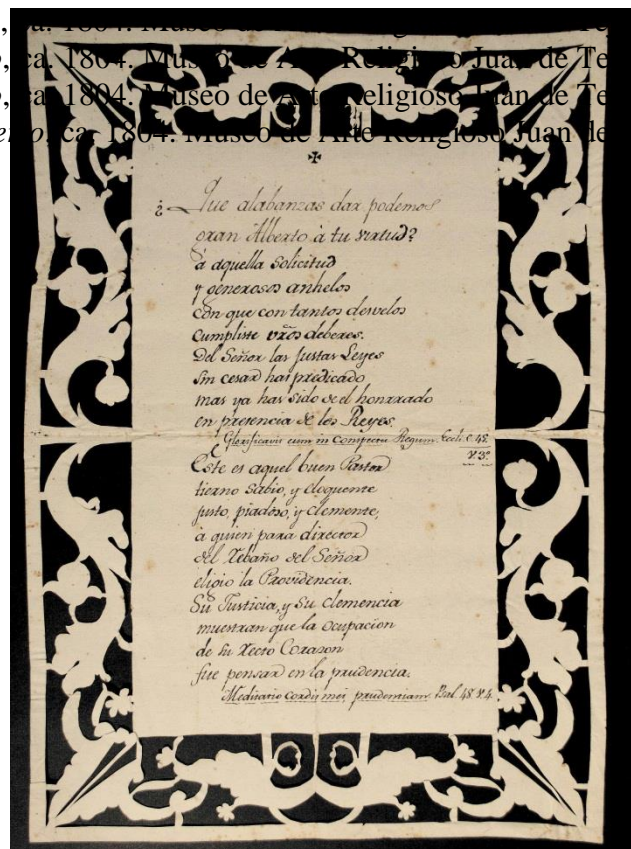 ca. 1804. Museo de Arte Religioso Juan de Te
o, ca. 1804. Museo de Arte Religioso Juan de Te
o, ca. 1804. Museo de Arte Religioso Juan de Te
ca. 1804. Museo de Arte Religioso Juan de
✠
¿Que alabanzas dar podemos
gran Alberto à tu virtud?
à aquella solicitud
y generosos anhelos
con que con tantos desvelos
cumpliste vros deberes.
Del Señor las Justas Leyes
sin cesar has predicado
mas ya has sido de el honrrado
en presencia de los Reyes.
Glorificavit eum in Conspectu Regum. Eccli. c. 45.
V. 3º
Este es aquel buen Pastor
tierno sabio, y eloquente
justo, piadoso, y clemente,
a quien para director
del Rebaño del Señor
eligio la Providencia.
Su Justicia, y su clemencia
muestran que la ocupacion
de su Recto Corazon
fue pensar en la prudencia.
Meditatio Cordis mei prudentiam. Psal. 48. V. 4.